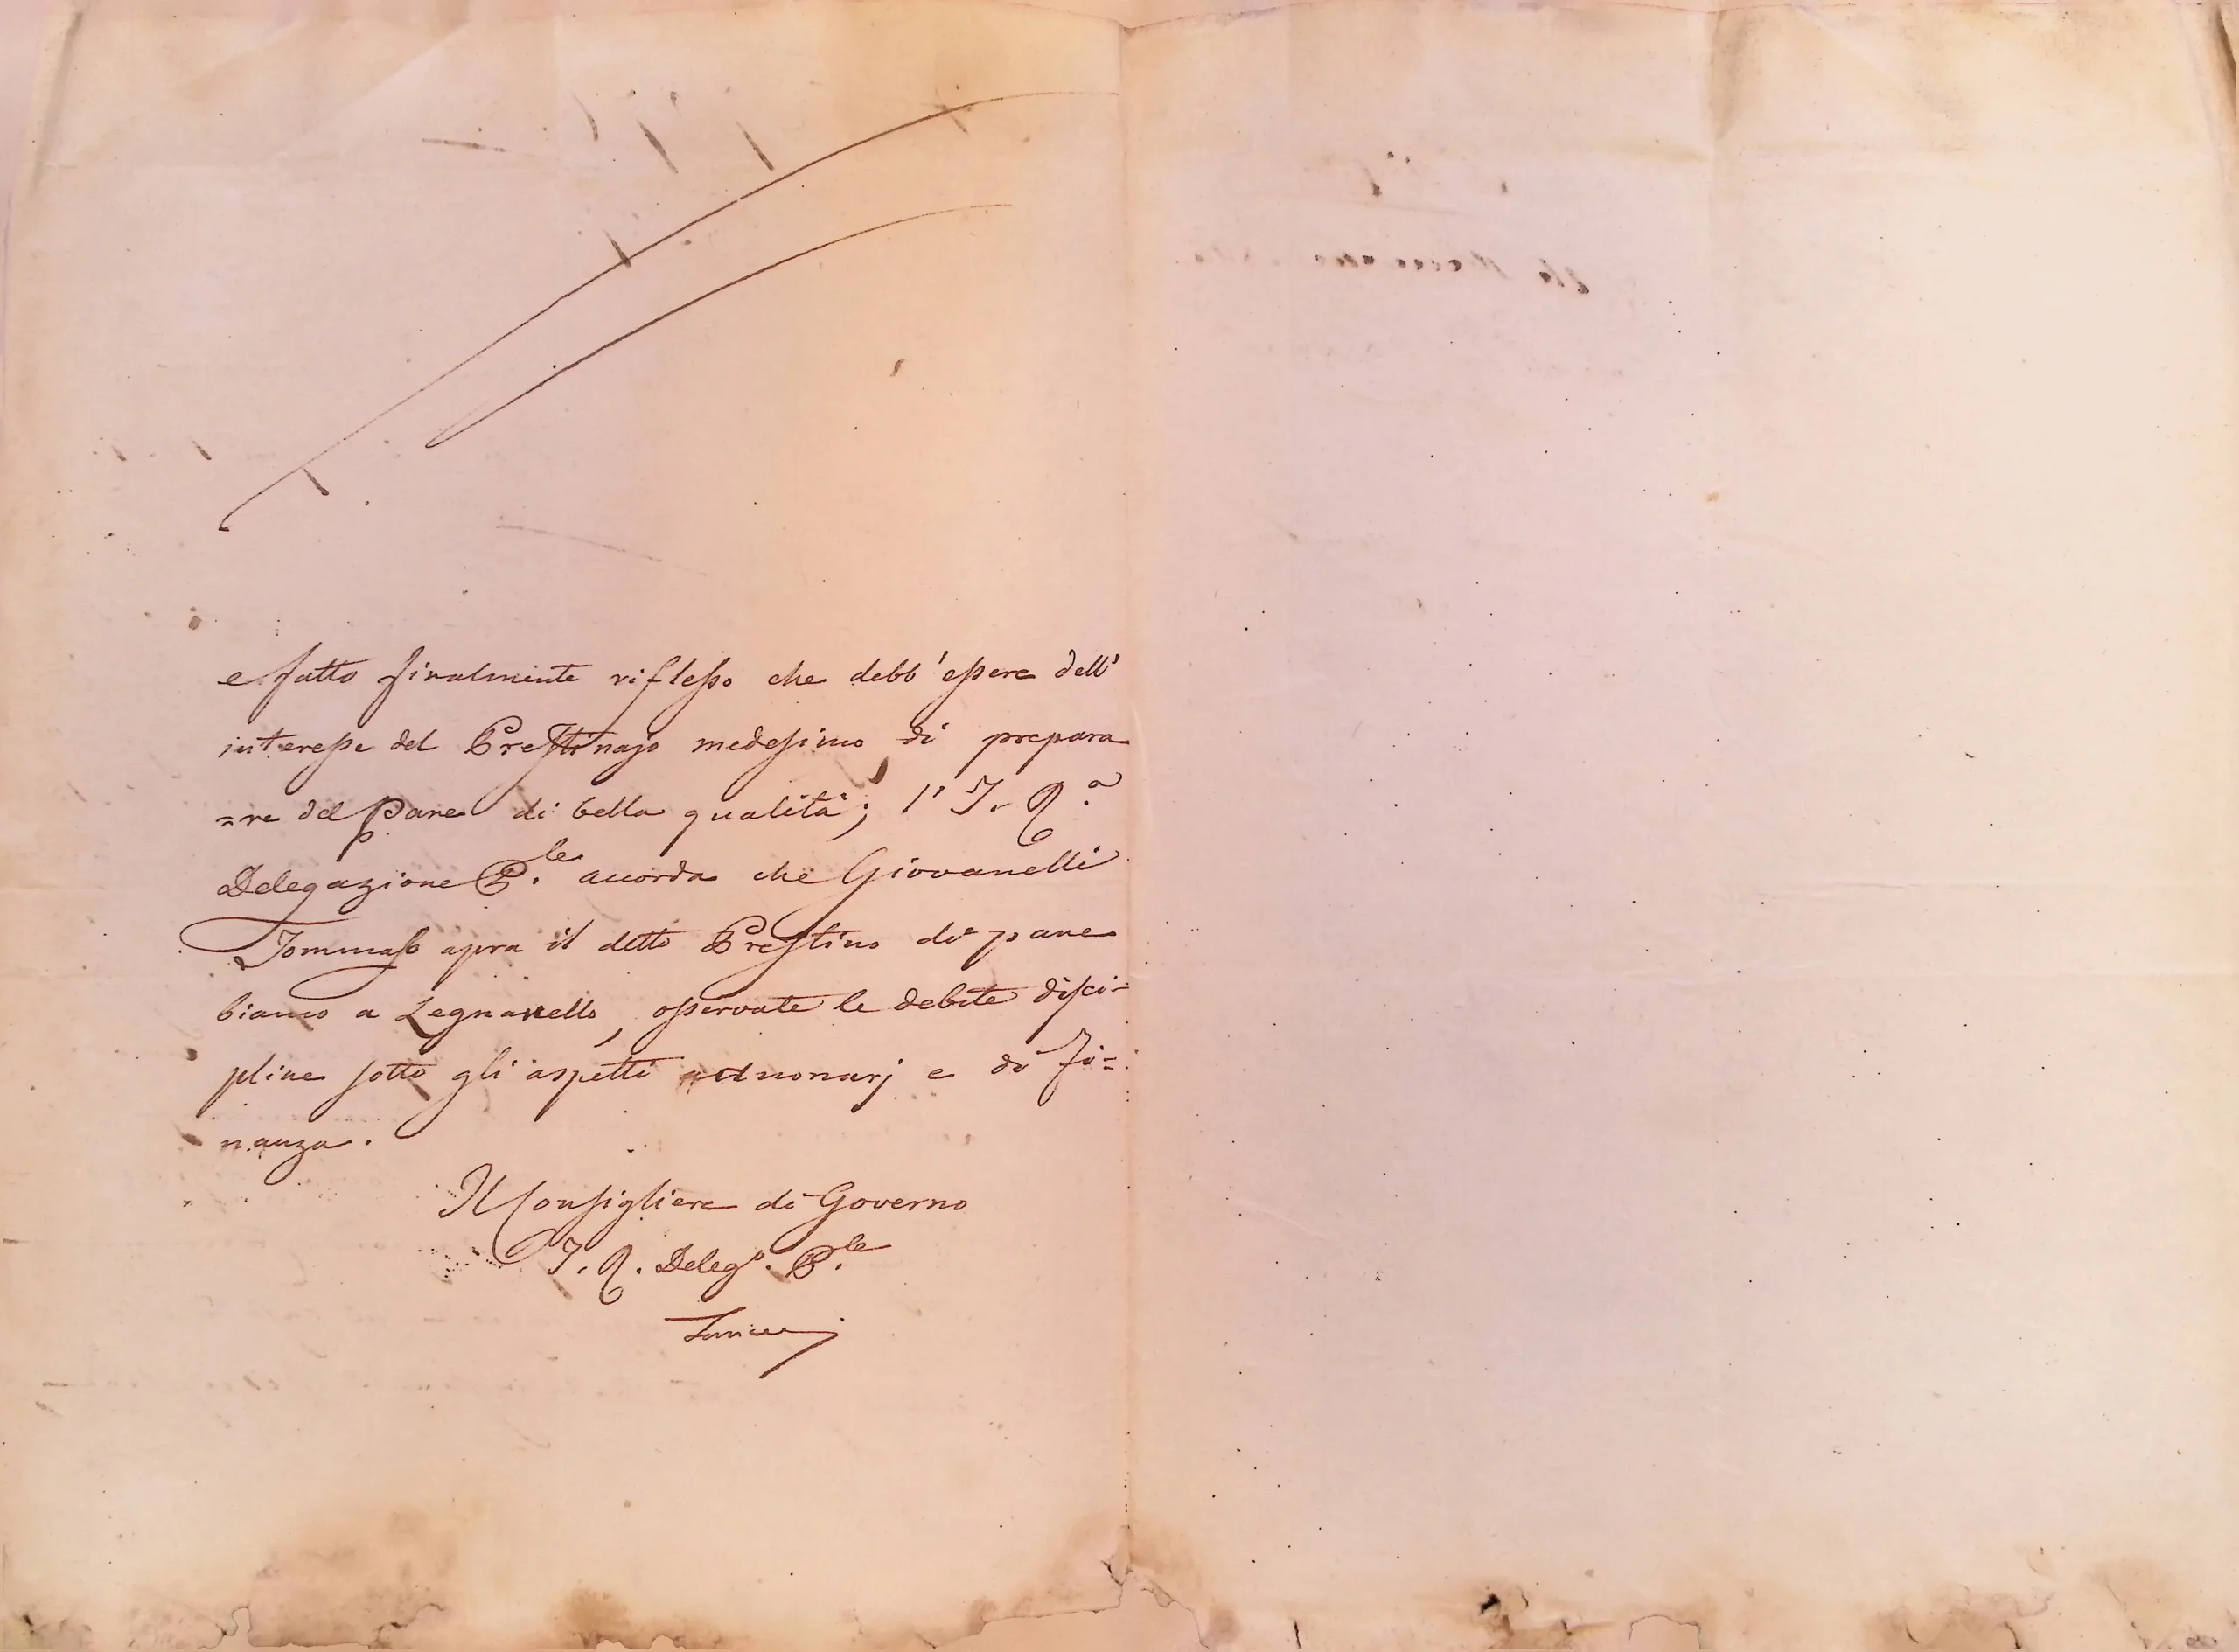 e fatto finalmente riflesso che debb'essere dell'
interesse del Prestinajo medesimo di prepara
=re del Pane di bella qualità; l'I. R.a
Delegazione P.le accorda che Giovanelli
Tommaso apra il detto Prestino di pane
bianco a Legnanello, osservate le debite disci-
pline sotto gli aspetti annonarj e di Fi=
nanza.
Il Consigliere di Governo
I. R. Deleg.o P.le